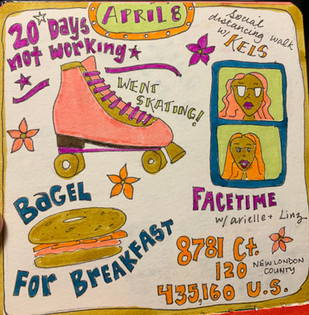 APRIL 8
20 DAYS
not WORKING
Social
distancing walk
w/ KELS
WENT
SKATING!
BAGEL
FOR BREAKFAST
FACETIME
w/ arielle + Linz
8781 Ct.
120 NEW LONDON
COUNTY
435,160 U.S.